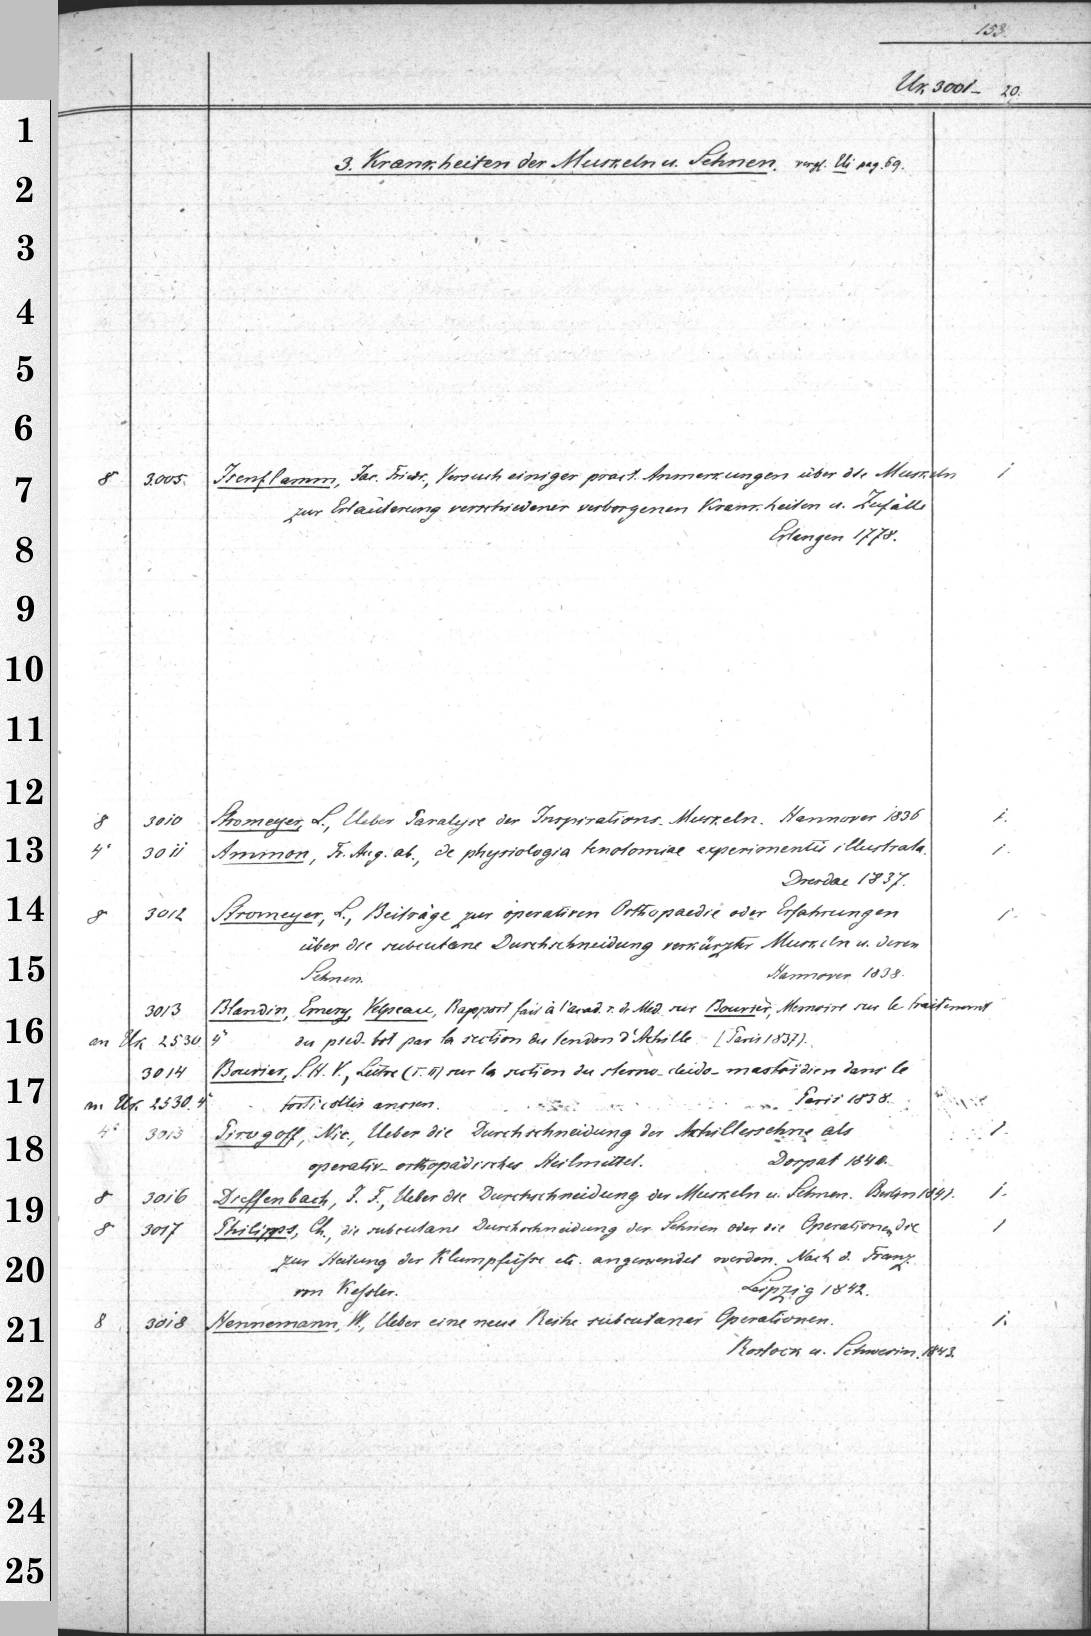 153.
Uk 3001- 20.
3. Krankheiten der Muskeln u. Sehnen. vergl. Ui pag. 69.
8 3005. Isenflamm, Jac. Friedr., Versuch einiger pract. Anmerkungen über die Muskeln 1
zur Erläuterung verschiedener verborgenen Krankheiten u. Zufälle
Erlangen 1778.
8 3010 Stromeyer, L., Ueber Paralyse der Inspirations-Muskeln. Hannover 1836 1.
4° 3011 Ammon, Fr. Aug. ab., de physiologia tenotomiae experimentis illustrata. 1.
Dresdae 1837.
8 3012 Stromeyer, L., Beiträge zur operativen Orthopaedie oder Erfahrungen 1.
über die subcutane Durchschneidung verkürzter Muskeln u. deren
Sehnen. Hannover 1838.
3013 Blandin, Emery, Velpeau, Rapport fait à l'acad. r. de Med. sur Bouvier, Memoire sur le traitement
an Uk 2530 4° du pied bot par la section du tendon d'Achille. [Paris 1837].
3014 Bouvier, S. H. V., Lettre (I. II) sur la section du sterno-cleido-mastoidien dans le
an Uk 2530. 4° torticollis ancien. Paris 1838.
4° 3015 Pirogoff, Nic., Ueber die Durchschneidung der Achillessehne als 1.
operativ-orthopädisches Heilmittel. Dorpat 1840.
8 3016 Dieffenbach, J. F., Ueber die Durchschneidung der Muskeln u. Sehnen. Berlin 1841. 1.
8 3017 Philipps, Ch., die subcutane Durchschneidung der Sehnen oder die Operationen, die 1
zur Heilung der Klumpfüsse etc. angewendet werden. Nach d. Franz.
von Kessler. Leipzig 1842.
8 3018 Hennemann, W., Ueber eine neue Reihe subcutaner Operationen. 1.
Rostock u. Schwerin. 1843.